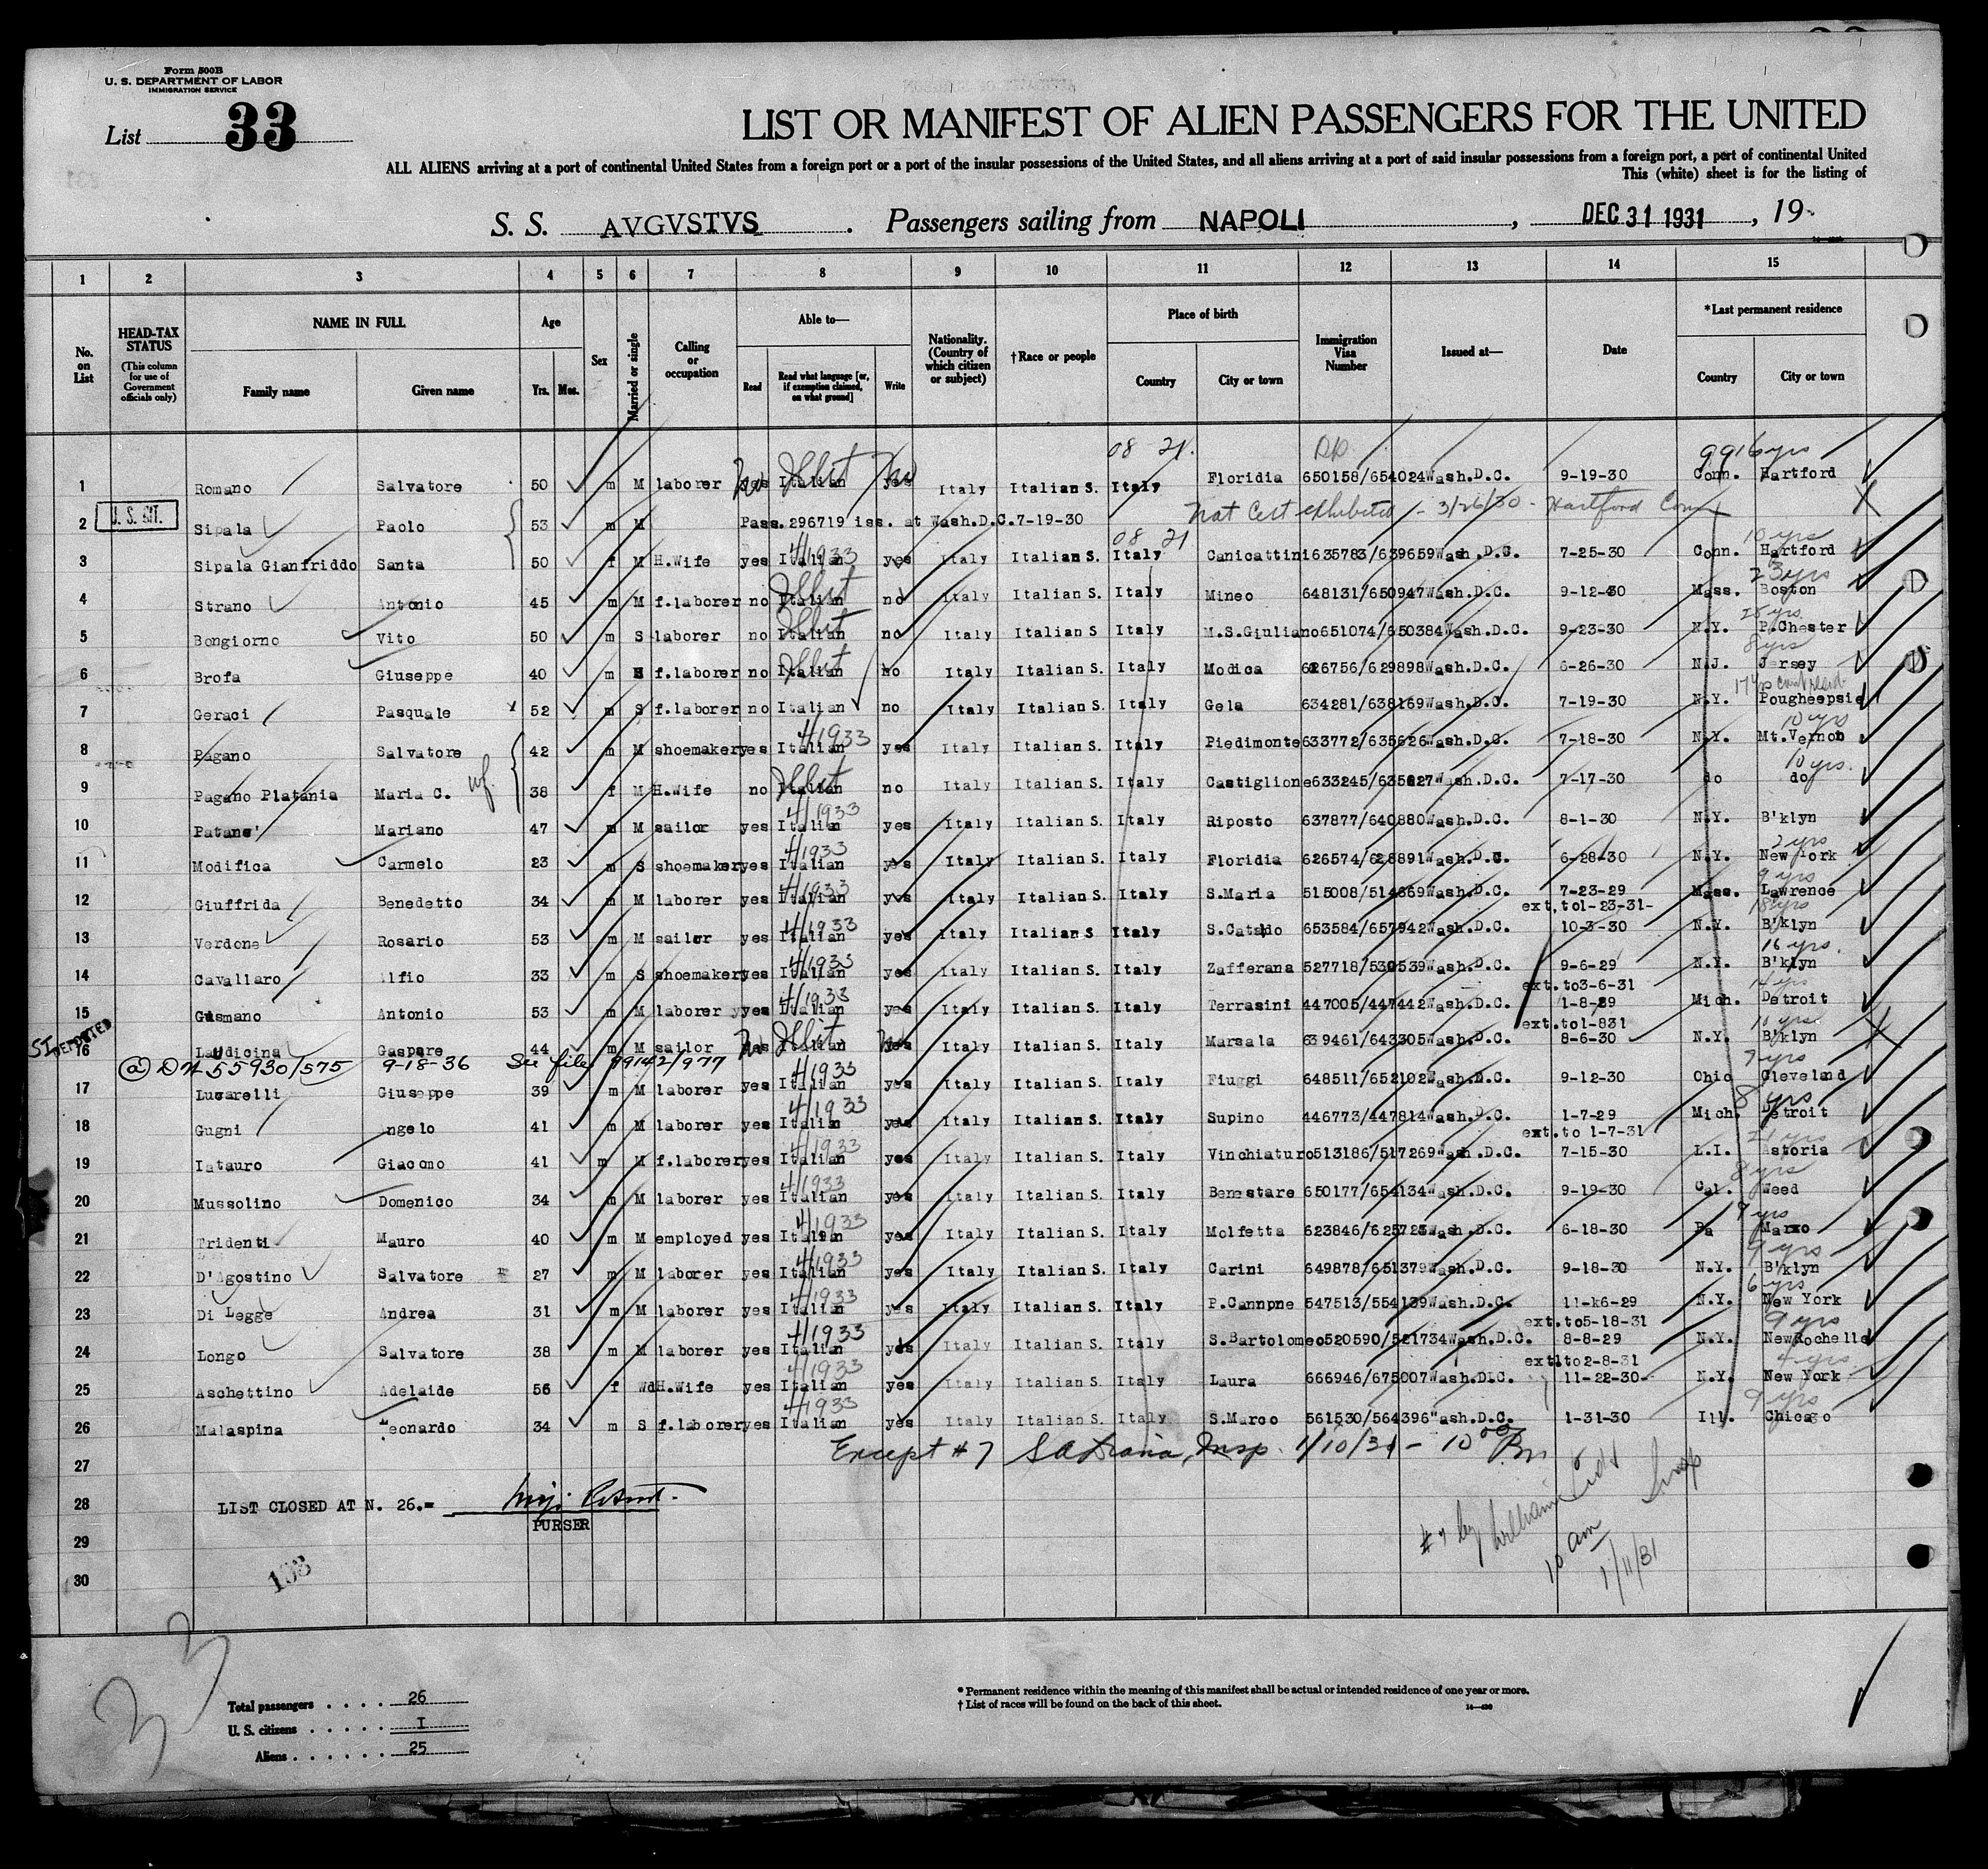 Form 500B
U. S. DEPARTMENT OF LABOR
IMMIGRATION SERVICE
List 33
LIST OR MANIFEST OF ALIEN PASSENGERS FOR THE UNITED
ALL ALIENS arriving at a port of continental United States from a foreign port or a port of the insular possessions of the United States, and all aliens arriving at a port of said insular possessions from a foreign port, a port of continental United
This (white) sheet is for the listing of
S. S. AVGVSTVS. Passengers sailing from NAPOLI, DEC 31 1931, 19
1 2 3 4 5 6 7 8 9 10 11 12 13 14 15
No. on List
HEAD-TAX STATUS (This column for use of Government officials only)
NAME IN FULL
Family name Given name
Age
Yrs. Mos.
Sex
Married or single
Calling or occupation
Able to—
Read Read what language [or, if exemption claimed, on what ground] Write
Nationality. (Country of which citizen or subject)
†Race or people
Place of birth
Country City or town
Immigration Visa Number
Issued at—
Date
*Last permanent residence
Country City or town
08 21. 16 yrs
1 Romano Salvatore 50 m M laborer yes Italian yes Italy Italian S. Italy Floridia 650158/654024 Wash.D.C. 9-19-30 Conn. Hartford
U. S. CIT.
2 Sipala Paolo 53 m M Pass. 296719 iss. at Wash.D.C. 7-19-30 Nat Cert exhibited - 3/26/30 - Hartford Conn
08 21 10 yrs
3 Sipala Gianfriddo Santa 50 f M H.Wife yes Italian 4/1933 yes Italy Italian S. Italy Canicattini 635783/639659 Wash.D.C. 7-25-30 Conn. Hartford
23 yrs
4 Strano Antonio 45 m M f.laborer no Italian no Italy Italian S. Italy Mineo 648131/650947 Wash.D.C. 9-12-30 Mass. Boston
5 Bongiorno Vito 50 m S laborer no Italian no Italy Italian S Italy M.S.Giuliano 651074/650384 Wash.D.C. 9-23-30 N.Y. P.Chester
8 yrs
6 Brofa Giuseppe 40 m f.laborer no Italian no Italy Italian S. Italy Modica 626756/629898 Wash.D.C. 6-26-30 N.J. Jersey
7 Geraci Pasquale 52 m S f.laborer no Italian no Italy Italian S. Italy Gela 634281/638169 Wash.D.C. 7-19-30 N.Y. Pougheepsie
10 yrs
8 Pagano Salvatore 42 m M shoemaker yes Italian 4/1933 yes Italy Italian S. Italy Piedimonte 633772/635626 Wash.D.C. 7-18-30 N.Y. Mt.Vernon
10 yrs.
9 Pagano Platania Maria C. wf. 38 f M H.Wife no Italian no Italy Italian S. Italy Castiglione 633245/635627 Wash.D.C. 7-17-30 do do
10 Patane' Mariano 47 m M sailor yes Italian 4/1933 yes Italy Italian S. Italy Riposto 637877/640880 Wash.D.C. 8-1-30 N.Y. B'klyn
11 Modifica Carmelo 23 m S shoemaker yes Italian 4/1933 yes Italy Italian S. Italy Floridia 626574/628891 Wash.D.C. 6-28-30 N.Y. New York
9 yrs
12 Giuffrida Benedetto 34 m M laborer yes Italian 4/1933 yes Italy Italian S. Italy S.Maria 515008/514669 Wash.D.C. 7-23-29 Mass. Lawrence
ext.to1-23-31- 18 yrs
13 Verdone Rosario 53 m M sailor yes Italian 4/1933 yes Italy Italian S Italy S.Cataldo 653584/657942 Wash.D.C. 10-3-30 N.Y. B'klyn
16 yrs.
14 Cavallaro Alfio 33 m S shoemaker yes Italian 4/1933 yes Italy Italian S. Italy Zafferana 527718/530539 Wash.D.C. 9-6-29 N.Y. B'klyn
ext.to3-6-31 14 yrs
15 Gusmano Antonio 53 m M laborer yes Italian 4/1933 yes Italy Italian S. Italy Terrasini 447005/447442 Wash.D.C. 1-8-29 Mich. Detroit
ext.to1-831
SI DEPORTED
16 Laudicina Gaspare 44 m M sailor yes Italian yes Italy Italian S. Italy Marsala 639461/643305 Wash.D.C. 8-6-30 N.Y. B'klyn
55930/575 9-18-36 See file 99142/977 7 yrs
17 Lucarelli Giuseppe 39 m M laborer yes Italian 4/1933 yes Italy Italian S. Italy Fiuggi 648511/652102 Wash.D.C. 9-12-30 Ohio Cleveland
8 yrs
18 Gugni Angelo 41 m M laborer yes Italian 4/1933 yes Italy Italian S. Italy Supino 446773/447814 Wash.D.C. 1-7-29 Mich. Detroit
ext.to 1-7-31 21 yrs
19 Iatauro Giacomo 41 m M f.laborer yes Italian 4/1933 yes Italy Italian S. Italy Vinchiaturo 513186/517269 Wash.D.C. 7-15-30 L.I. Astoria
8 yrs
20 Mussolino Domenico 34 m M laborer yes Italian 4/1933 yes Italy Italian S. Italy Benestare 650177/654134 Wash.D.C. 9-19-30 Cal. Weed
9 yrs
21 Tridenti Mauro 40 m M employed yes Italian 4/1933 yes Italy Italian S. Italy Molfetta 623846/625723 Wash.D.C. 6-18-30 Pa Marxo
9 yrs
22 D'Agostino Salvatore 27 m M laborer yes Italian 4/1933 yes Italy Italian S. Italy Carini 649878/651379 Wash.D.C. 9-18-30 N.Y. B'klyn
6 yrs
23 Di Legge Andrea 31 m M laborer yes Italian 4/1933 yes Italy Italian S. Italy P.Cannpne 547513/554139 Wash.D.C. 11-k6-29 N.Y. New York
ext.to5-18-31 9 yrs
24 Longo Salvatore 38 m M laborer yes Italian 4/1933 yes Italy Italian S. Italy S.Bartolomeo 520590/521734 Wash.D.C. 8-8-29 N.Y. NewRochelle
ext.to2-8-31 4 yrs
25 Aschettino Adelaide 56 f Wd H.Wife yes Italian 4/1933 yes Italy Italian S. Italy Laura 666946/675007 Wash.D.C. 11-22-30- N.Y. New York
9 yrs
26 Malaspina Leonardo 34 m S f.laborer yes Italian 4/1933 yes Italy Italian S. Italy S.Marco 561530/564396 Wash.D.C. 1-31-30 Ill. Chicago
27 Except #7 Insp. 1/10/31 - 10 00 Pm
28 LIST CLOSED AT N. 26.=
PURSER
29 #7 by William Insp
30 10 am 1/11/31
193
33
Total passengers . . . . 26
U. S. citizens . . . . . I
Aliens . . . . . . 25
* Permanent residence within the meaning of this manifest shall be actual or intended residence of one year or more.
† List of races will be found on the back of this sheet.